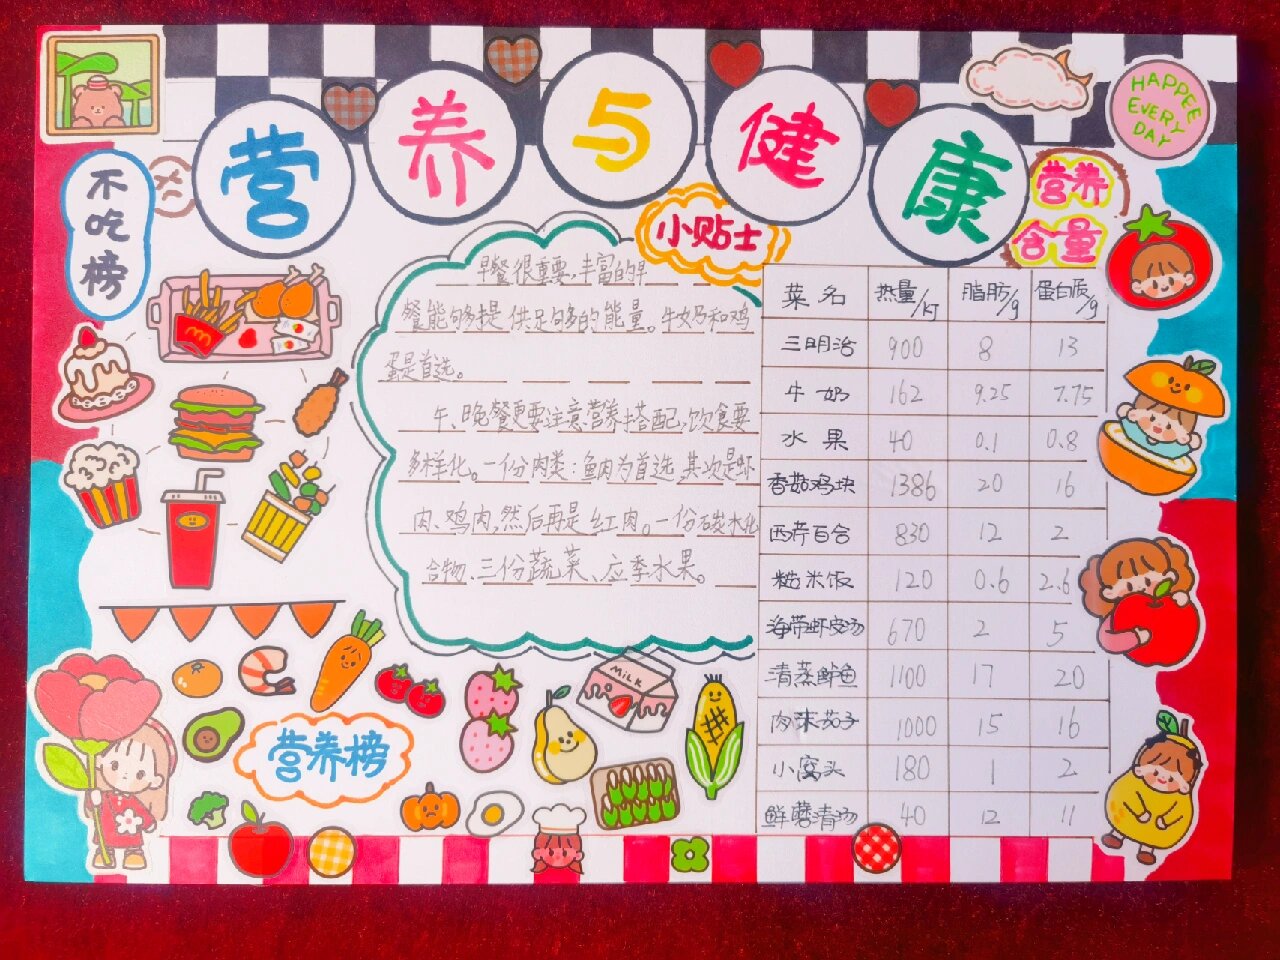 营养与健康
HAPPEE
EVERY
DAY
不吃榜
小贴士
营养
含量
早餐很重要,丰富的早
餐能够提供足够多的能量。牛奶和鸡
蛋是首选。
午、晚餐更要注意营养搭配,饮食要
多样化。一份肉类:鱼肉为首选,其次是虾
肉、鸡肉,然后再是红肉。一份碳水化
合物、三份蔬菜、应季水果。
菜名 热量/kJ 脂肪/g 蛋白质/g
三明治 900 8 13
牛奶 162 9.25 7.75
水果 40 0.1 0.8
香菇鸡块 1386 20 16
西芹百合 830 12 2
糙米饭 120 0.6 2.6
海带虾皮汤 670 2 5
清蒸鲈鱼 1100 17 20
肉沫茄子 1000 15 16
小窝头 180 1 2
鲜蘑清汤 40 12 11
MILK
营养榜